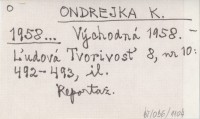 O
ONDREJKA K.
1958... Východná 1958. –
Ľudová Tvorivosť 8, nr 10:
492–493, il.
Reportaz.